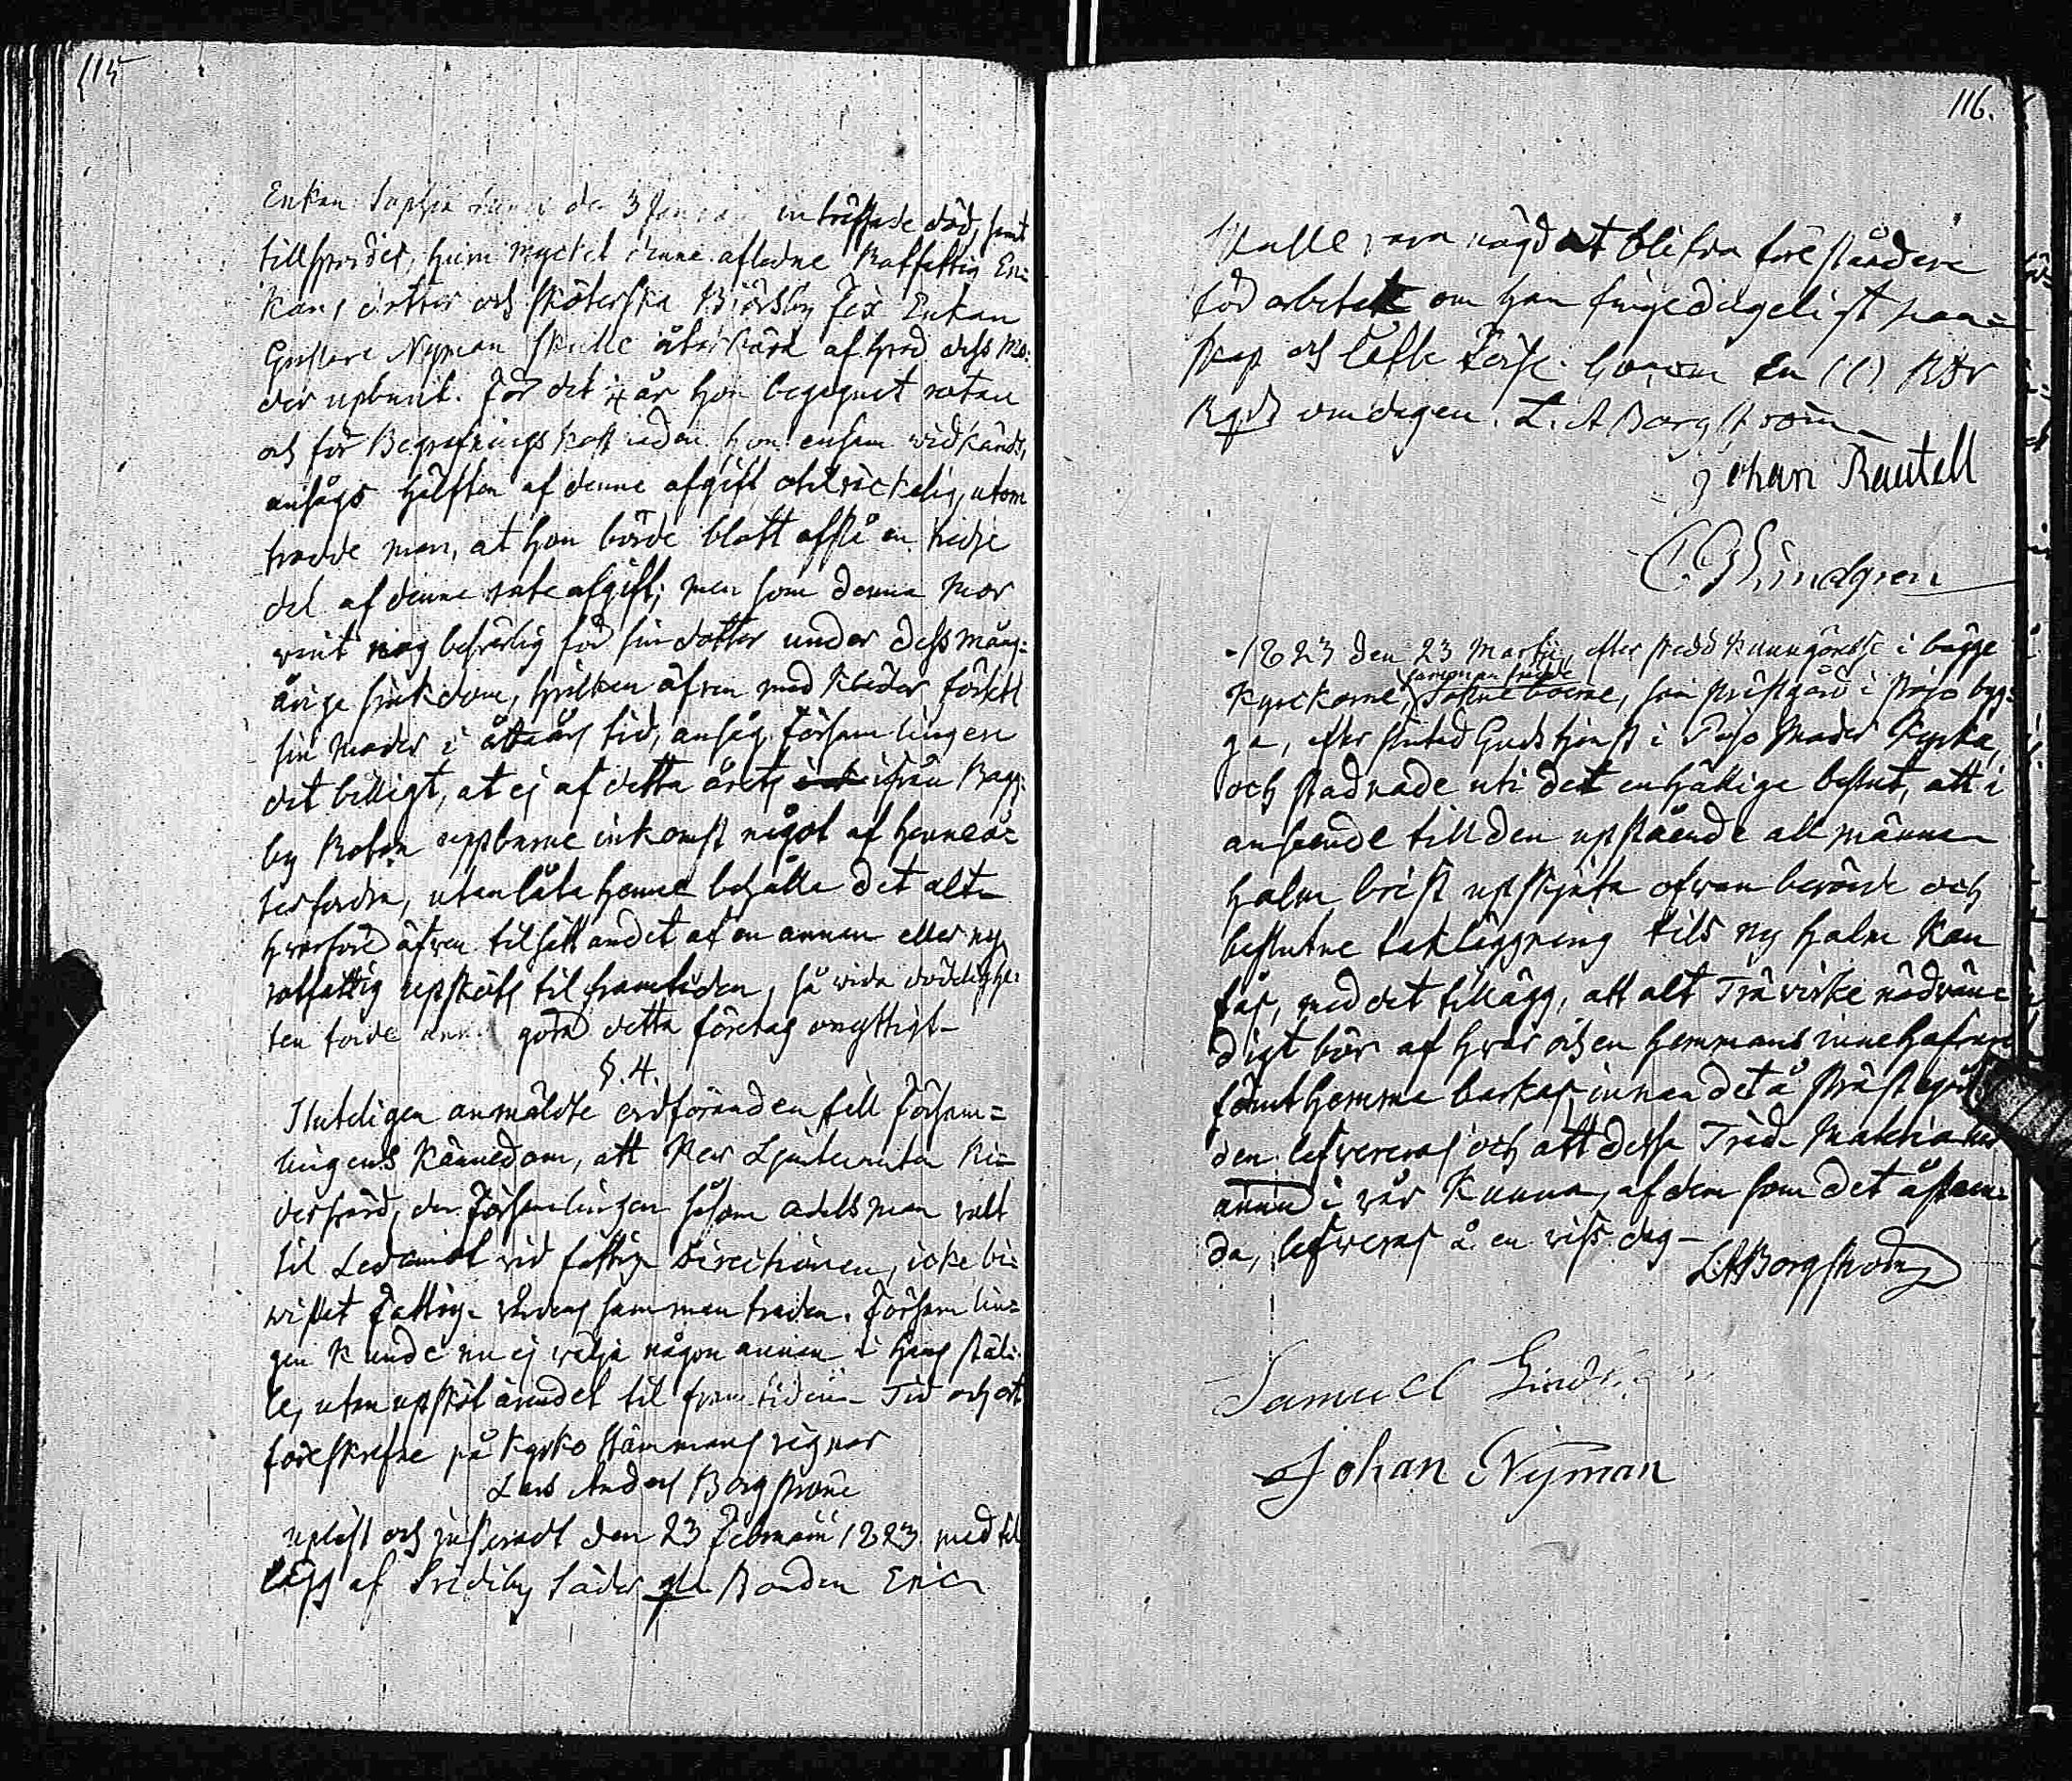 115
Enkan Sophia den 3 Januari inträffade död, samt
tillspordes, huru mycket denne aflidne Rotfattig En=
kans dotter och sköterska Enkan
Gustava Nyman skulle återbära af hvad dess Mo=
der upburit. För det ¼ år hon begagnat rotan
och för Begrafnings kostnaden hon ensam widkänds,
ansågs hälften af denne afgift otilräckelig, utom
trodde man, at hon borde blott afstå en tredje
del af denne rote afgift; men som denna Mor
warit nog beswärlig för sin dotter under dess mång=
åriga sjukdom, hvilken äfven med kläder försett
sin Moder i åtta års tid, ansåg Församlingen
det billigt, at ej af detta årets ifrån
by Rotan uppburne inkomst något af henne å=
terfordra, utan låta henne behålla det alt
hvarföre äfven tilsättandet af en annan eller ny
rotfattig upsköts til framtiden, så wida dödelighe=
ten torde göra detta företag onyttigt
§. 4.
Sluteligen anmälde ordföranden till Försam=
lingens kännedom, att Herr Ljeutenanten
den Församlingen såsom adelsman valt
til Ledamot vid fattig Directionen, icke bi=
wistat Fattig vårdens sammanträden. Församlin=
gen kunde nu ej välja någon annan i hans ställ=
le, utan upsköt ärendet til framtiden. Tid och ort
föreskrefne på Kyrko Stämmans vägnar
Lars Anders Borgström
Upläst och justeradt den 23 Februarii 1823 med til=
lägg af Bonden Eric
116.
skulle vara nögd at blifva föreståndare
för arbetet om han finge dageligt
skap och löfte honom en (1) RDr
Rgds om dagen. L. A Borgström
Johan Rautell
C. G. Lindgren
1823 den 23 Martii, efter skedd kunngörelse i bägge
Kyrkorne, sammanträdde Sockneboerne, som prästgård i Pojo byg=
ga, efter slutad Gudstjenst i Pojo Moder Kyrka,
och stadnade uti det enhällige beslut, att i
anseende till den upstående allmänna
halm brist upskjuta ofvan berörde och
beslutne takläggning tils ny halm kan
fås, med det tillägg, att alt Trävirke nödvän=
digt bör af hvar och en hemmans innehafvare
förut hemma barkas, innan det å Prästegår=
den lefvereras och att desse Träd Materialier
ännu i vår kunna, af dem som det åstun=
da, lefvereras å en viss dag
LABorgström
Samuel
Johan Nÿman